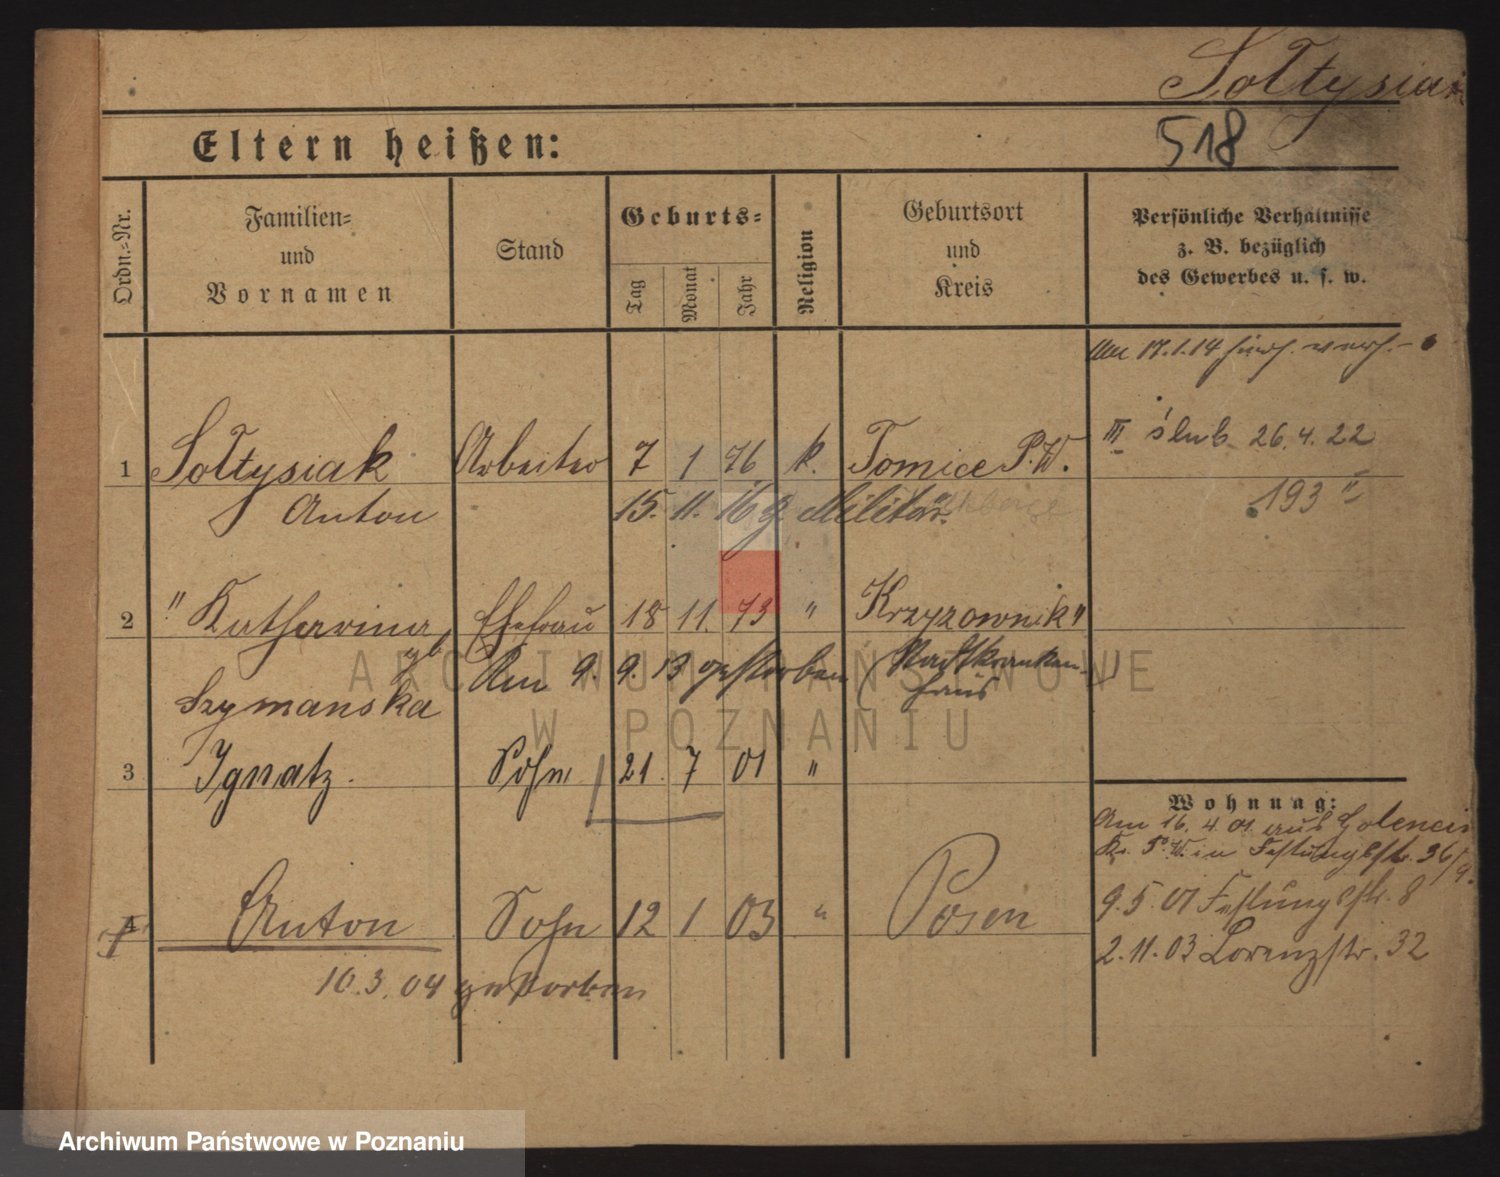 Sołtysiak
518
Eltern heißen:
Ordn.-Nr.
Familien-
und
Vornamen
Stand
Geburts-
Tag
Monat
Jahr
Religion
Geburtsort
und
Kreis
Persönliche Verhältnisse
z. B. bezüglich
des Gewerbes u. s. w.
Am 17.1.14
III ślub 26.4.22
193 "
1 Sołtysiak Arbeiter 7 1 76 k. Tomice P.W.
Anton 15. 11. 16 z. Militär.
2 " Katharina Ehefrau 18 11. 73 " Krzyzownik
gb Am 9. 9. 13 gestorben (Stadtkranken-
Szymanska haus
3 Ignatz. Sohn 21. 7 01 "
Wohnnag:
Am 16. 4. 01 aus
Kr. P.W. in Festungsstr. 36/9.
9.5.01 Festungsstr. 8
2.11.03 Lorenzstr. 32
4 Anton Sohn 12 1 03 " Posen
10.3.04 gestorben
ARCHIWUM PAŃSTWOWE
W POZNANIU
Archiwum Państwowe w Poznaniu